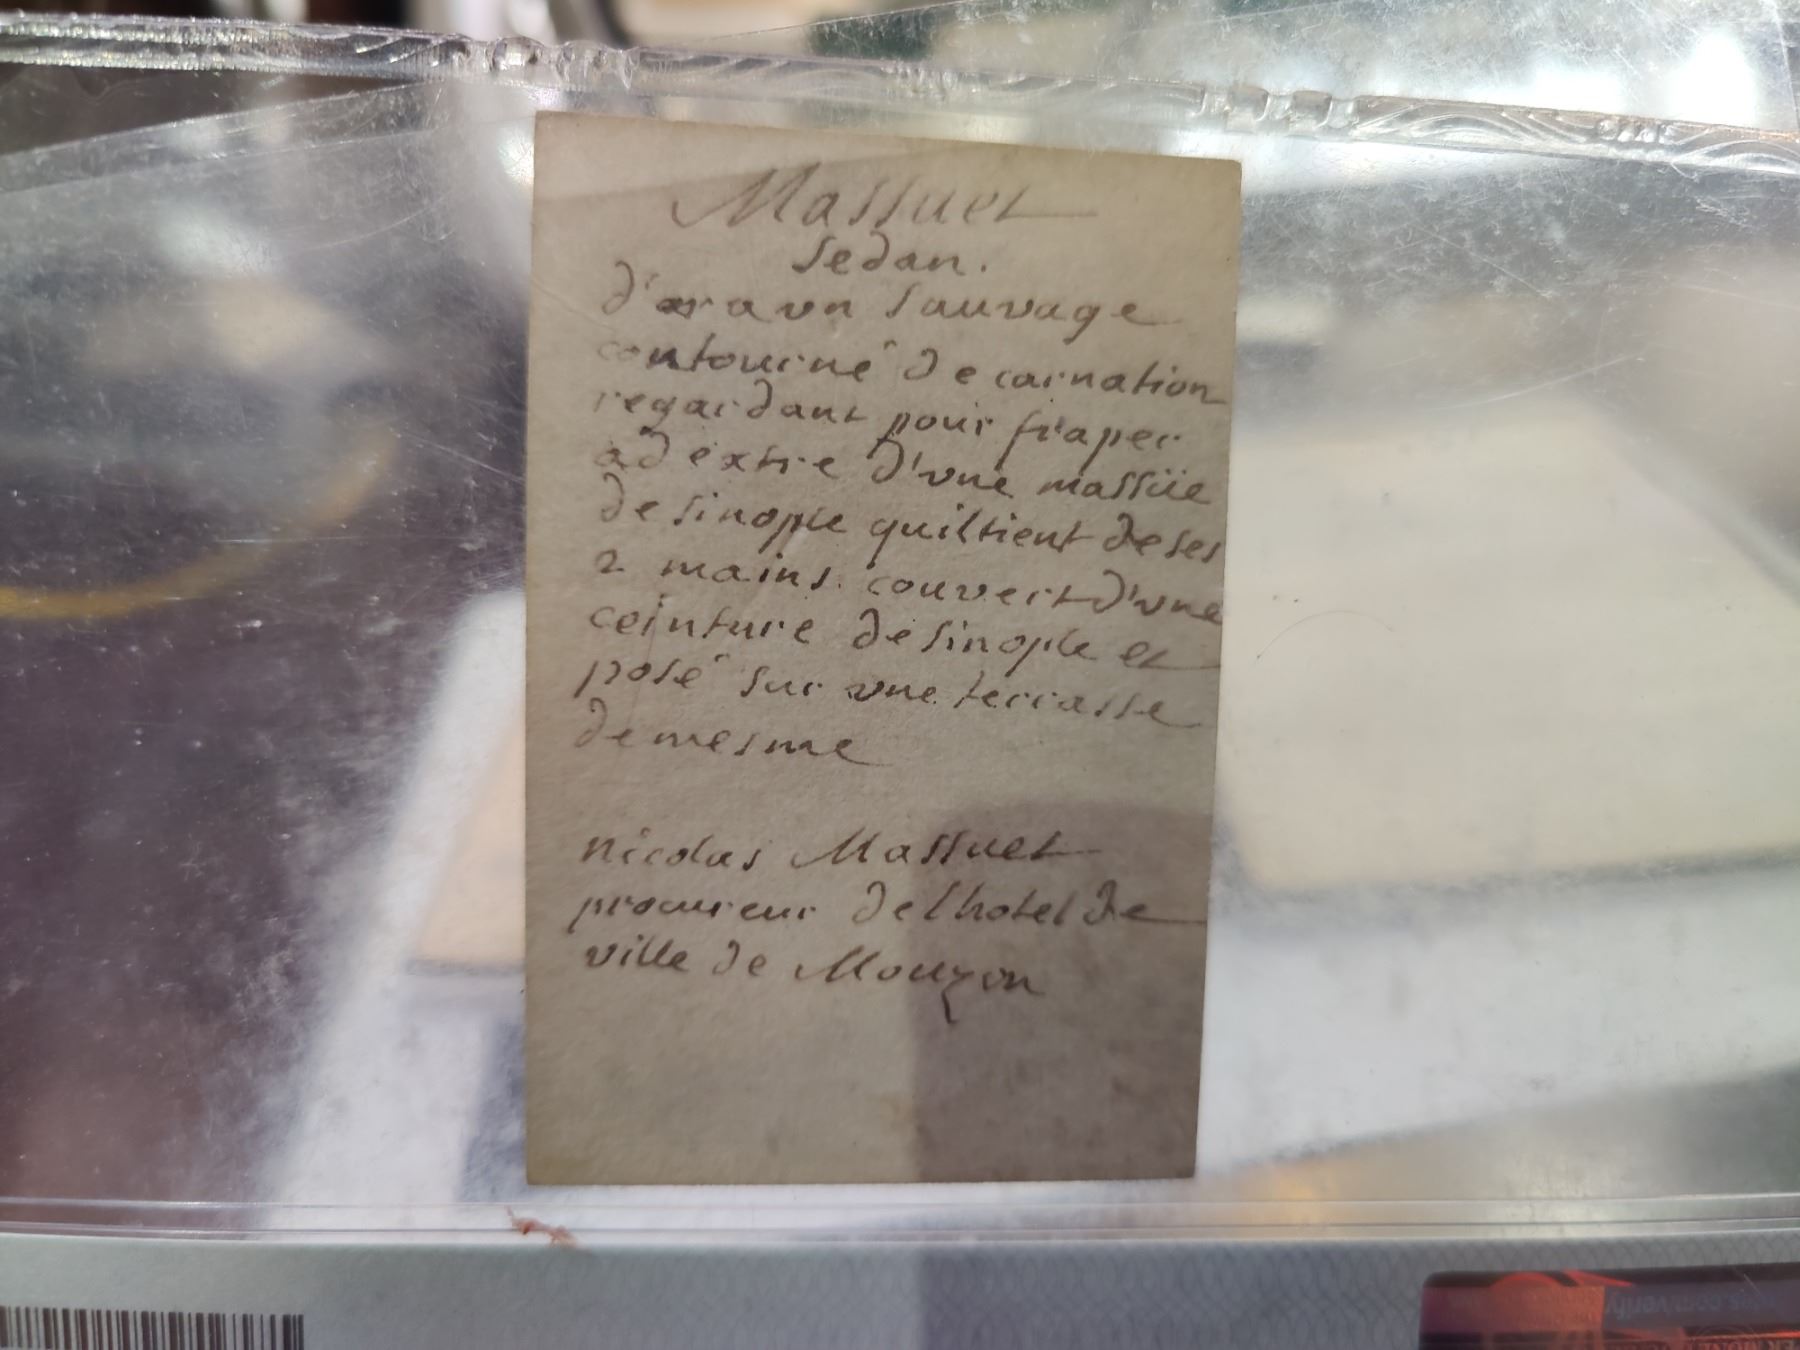 Massuet
Sedan.
d'or a vn sauvage
contourné de carnation
regardant pour fraper
a dextre d'vne massüe
de sinople quil tient de ses
2 mains. couvert d'vne
ceinture de sinople et
posé sur vne terrasse
de mesme
nicolas Massuet
procureur de lhotel de
ville de Mouzon